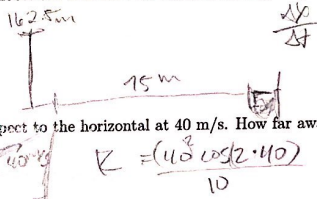 162.5m
Δy
Δt
15 m
pect to the horizontal at 40 m/s. How far aw
= (40² cos(2·40)
10